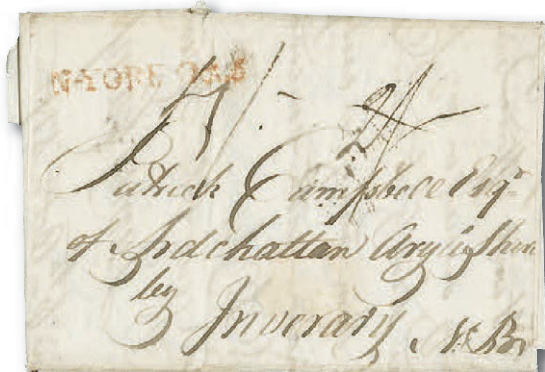 N·YORK
4/- 2/
Patrick Campbell Esqr
of Ardchattan Argyleshire
by
Inverary
N. Br